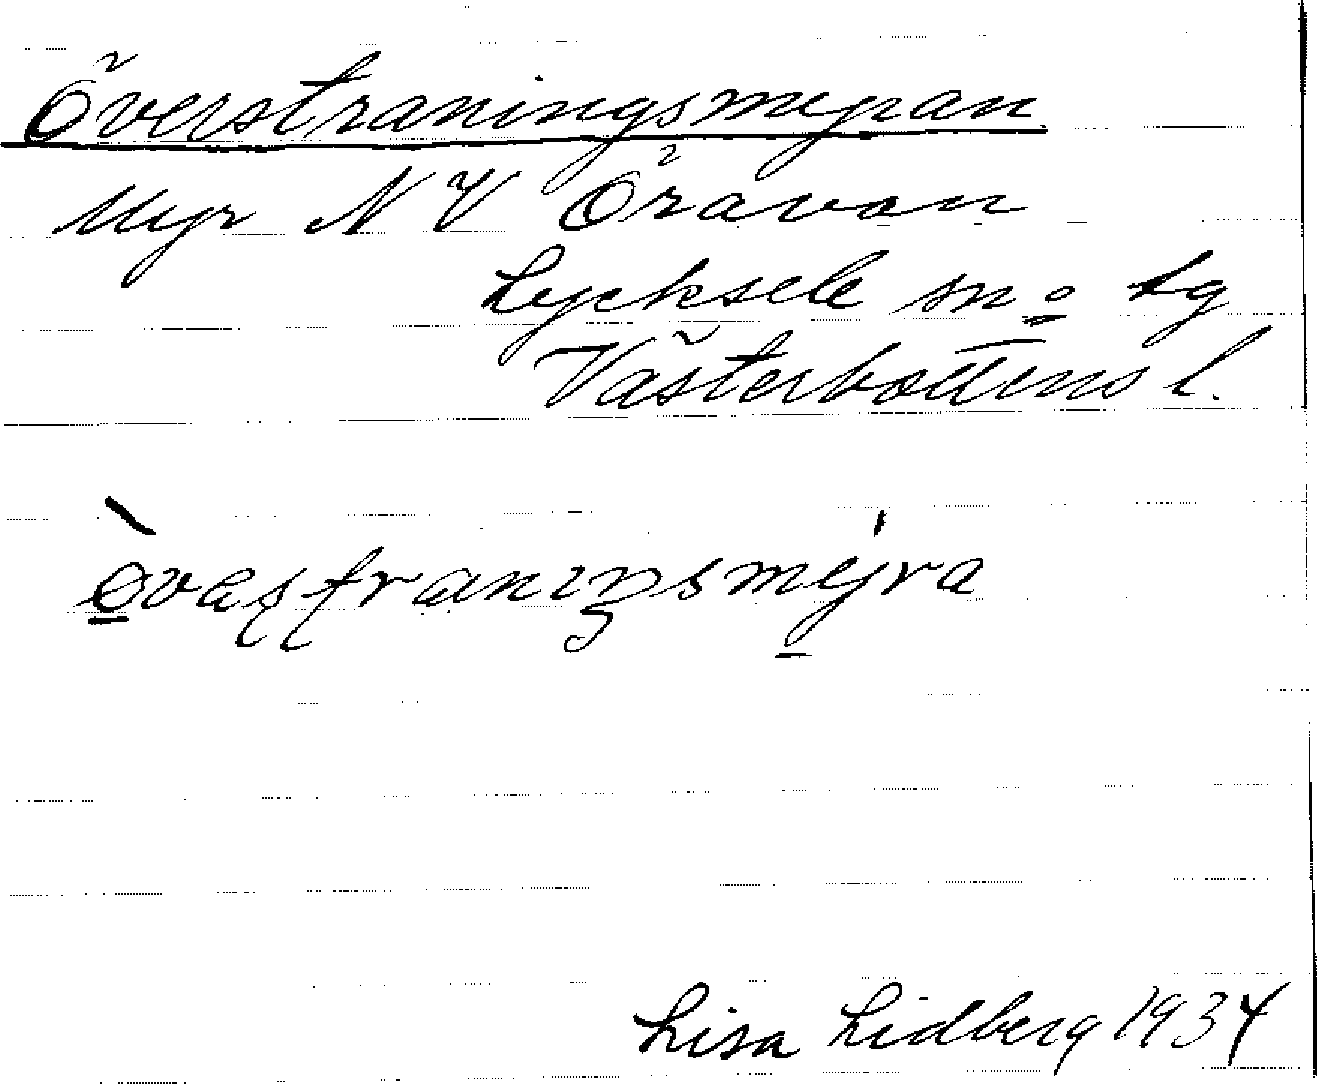 Överstraningsmyran
Myr NV Öravan
Lycksele sn o Lg
Västerbottens l.
Lisa Lidberg 1934